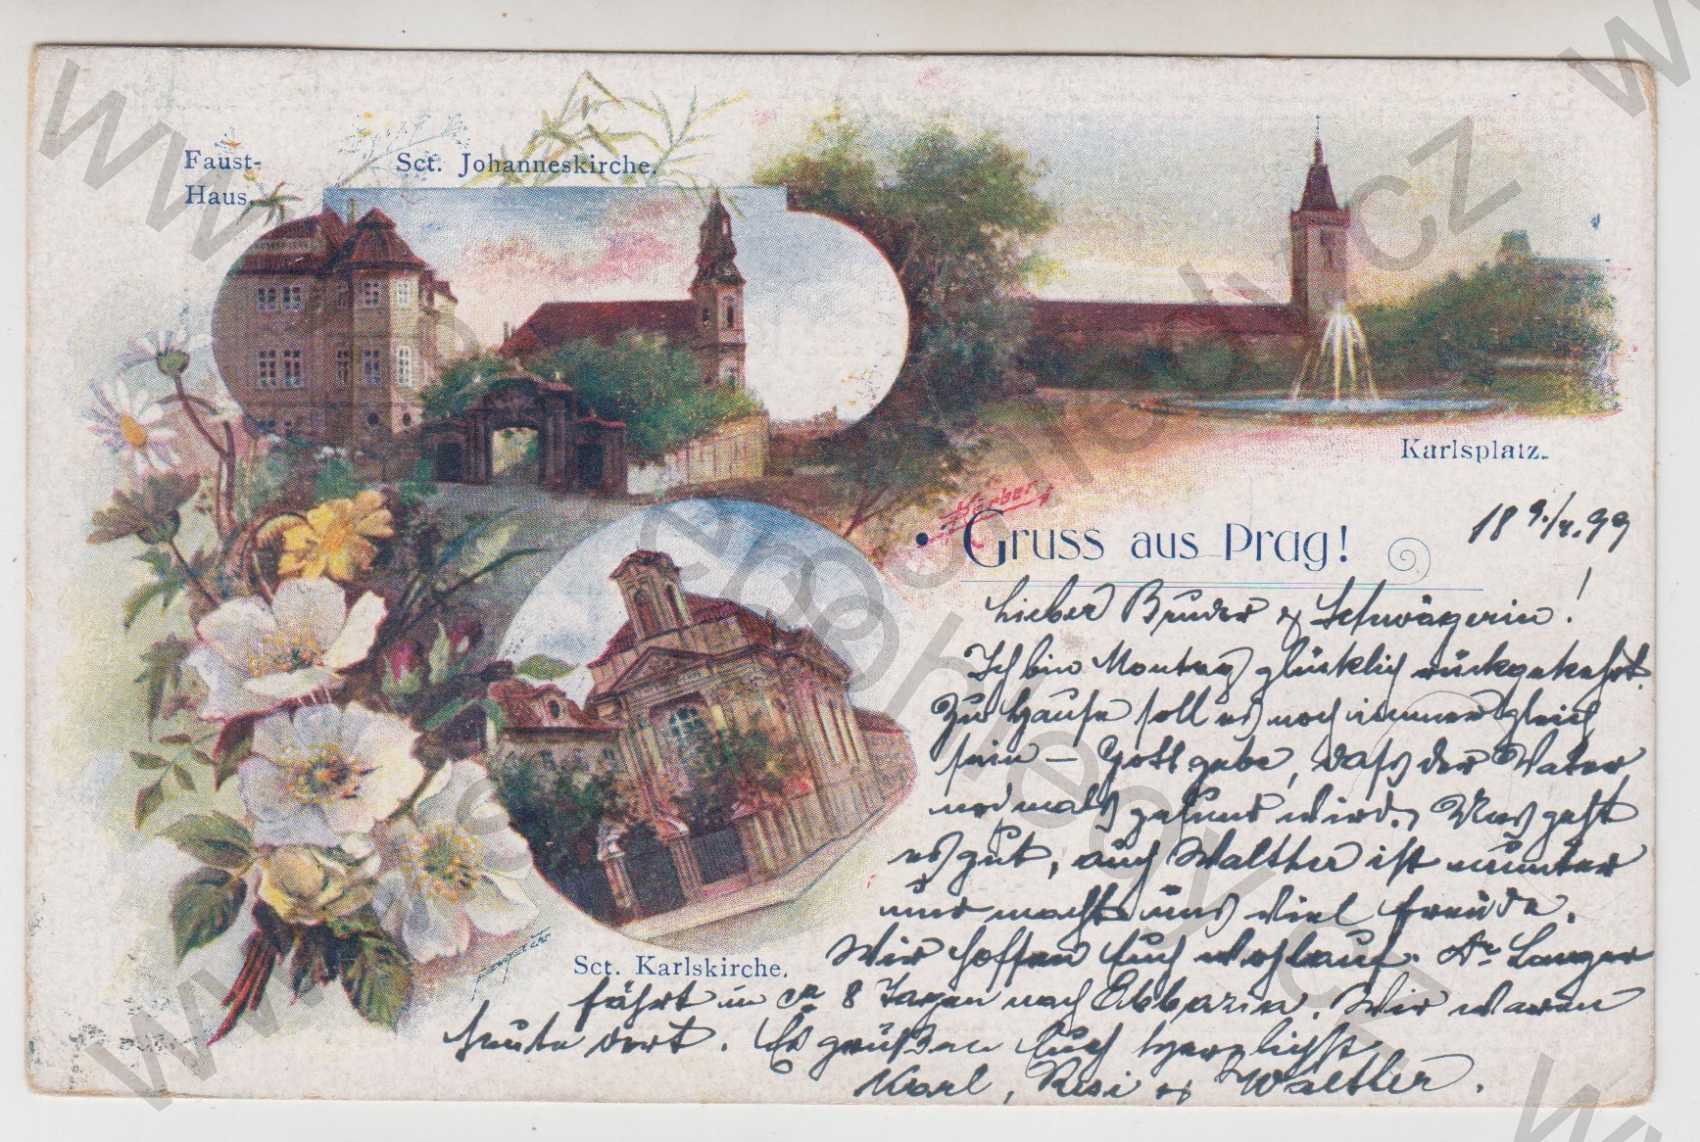 Faust-
Haus.
Sct. Johanneskirche.
Karlsplatz.
Gruss aus Prag!
18 9./4. 99
Lieber Bruder & Schwägerin!
Ich bin Montag glücklich rückgekehrt.
Zu Hause soll es noch immer gleich
sein – Gott gebe, daß der Vater
nochmals gesund wird. Uns geht
es gut, auch Walther ist munter
und macht uns viel Freude.
Wir hoffen Euch wohlauf. Dr. Langer
fährt in ca 8 Tagen nach Abbazia. Wir waren
heute dort. Es grüßen Euch herzlichst
Karl, Resi & Walther.
Sct. Karlskirche.